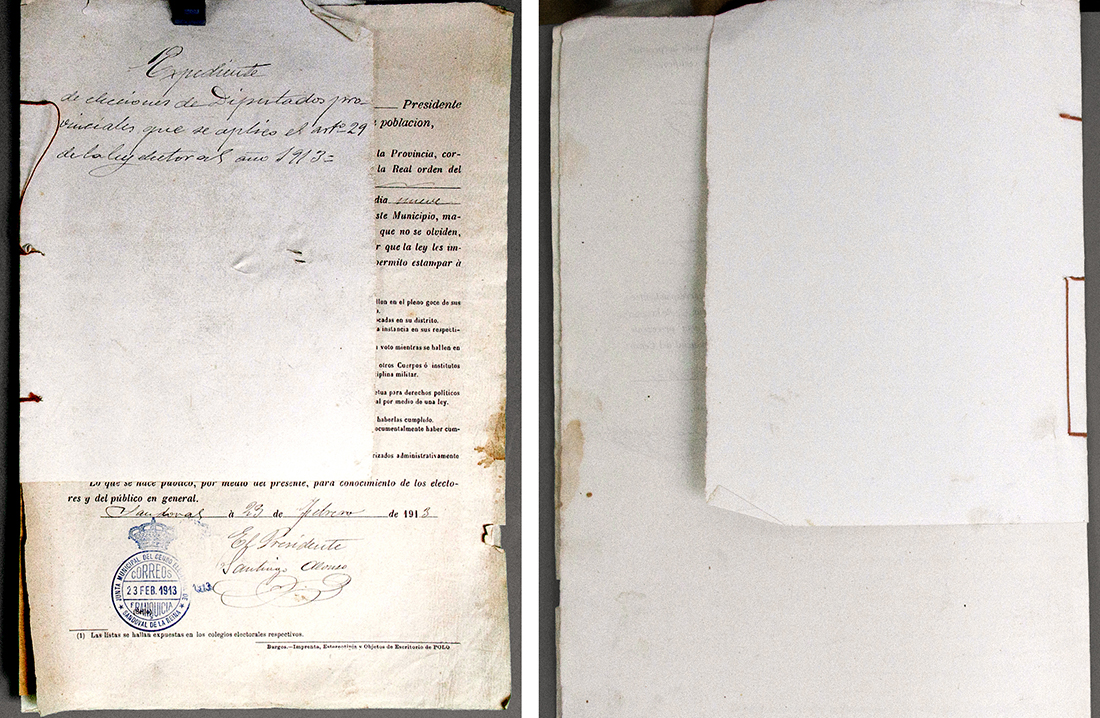 Expediente
de elecciones de Diputados pro-
vinciales que se aplico el artº 29
de la ley electoral año 1913=
Presidente
poblacion,
la Provincia, cor-
la Real orden del
día nueve
ste Municipio, ma-
que no se olviden,
r que la ley les im-
permito estampar à
llen en el pleno goce de sus
ocadas en su distrito.
a instancia en sus respecti-
voto mientras se hallen en
otros Cuerpos ó institutos
ciplina militar.
etua para derechos políticos
al por medio de una ley.
haberlas cumplido.
ocumentalmente haber cum-
rizados administrativamente
Lo que se hace público, por medio del presente, para conocimiento de los electo-
res y del público en general.
Sandoval à 23 de Febrero de 1913
El Presidente
Santiago Alonso
JUNTA MUNICIPAL DEL CENSO
CORREOS
23 FEB. 1913
1913
FRANQUICIA
SANDOVAL DE LA REINA
(1) Las listas se hallan expuestas en los colegios electorales respectivos.
Burgos.—Imprenta, Estereotipia y Objetos de Escritorio de POLO